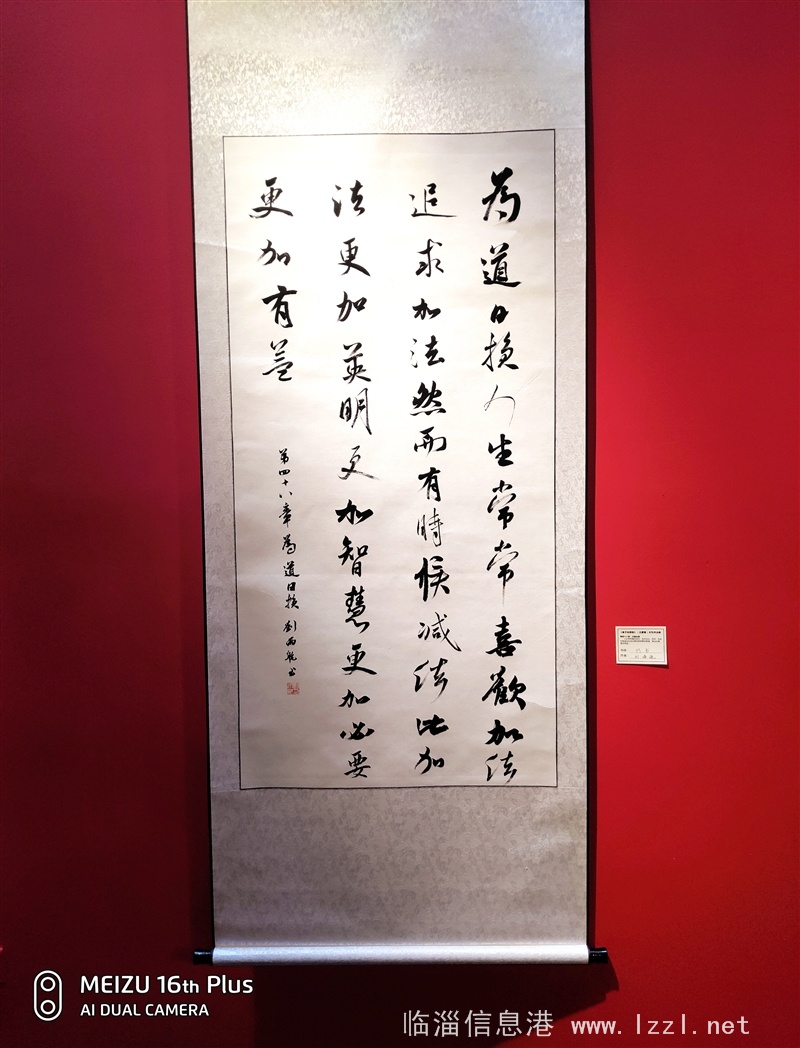 為道日損人生常常喜歡加法
追求加法然而有時候减法比加
法更加英明更加智慧更加必要
更加有益
第四十八章為道日損劉雨航书
MEIZU 16th Plus
AI DUAL CAMERA
临淄信息港 www.lzzl.net